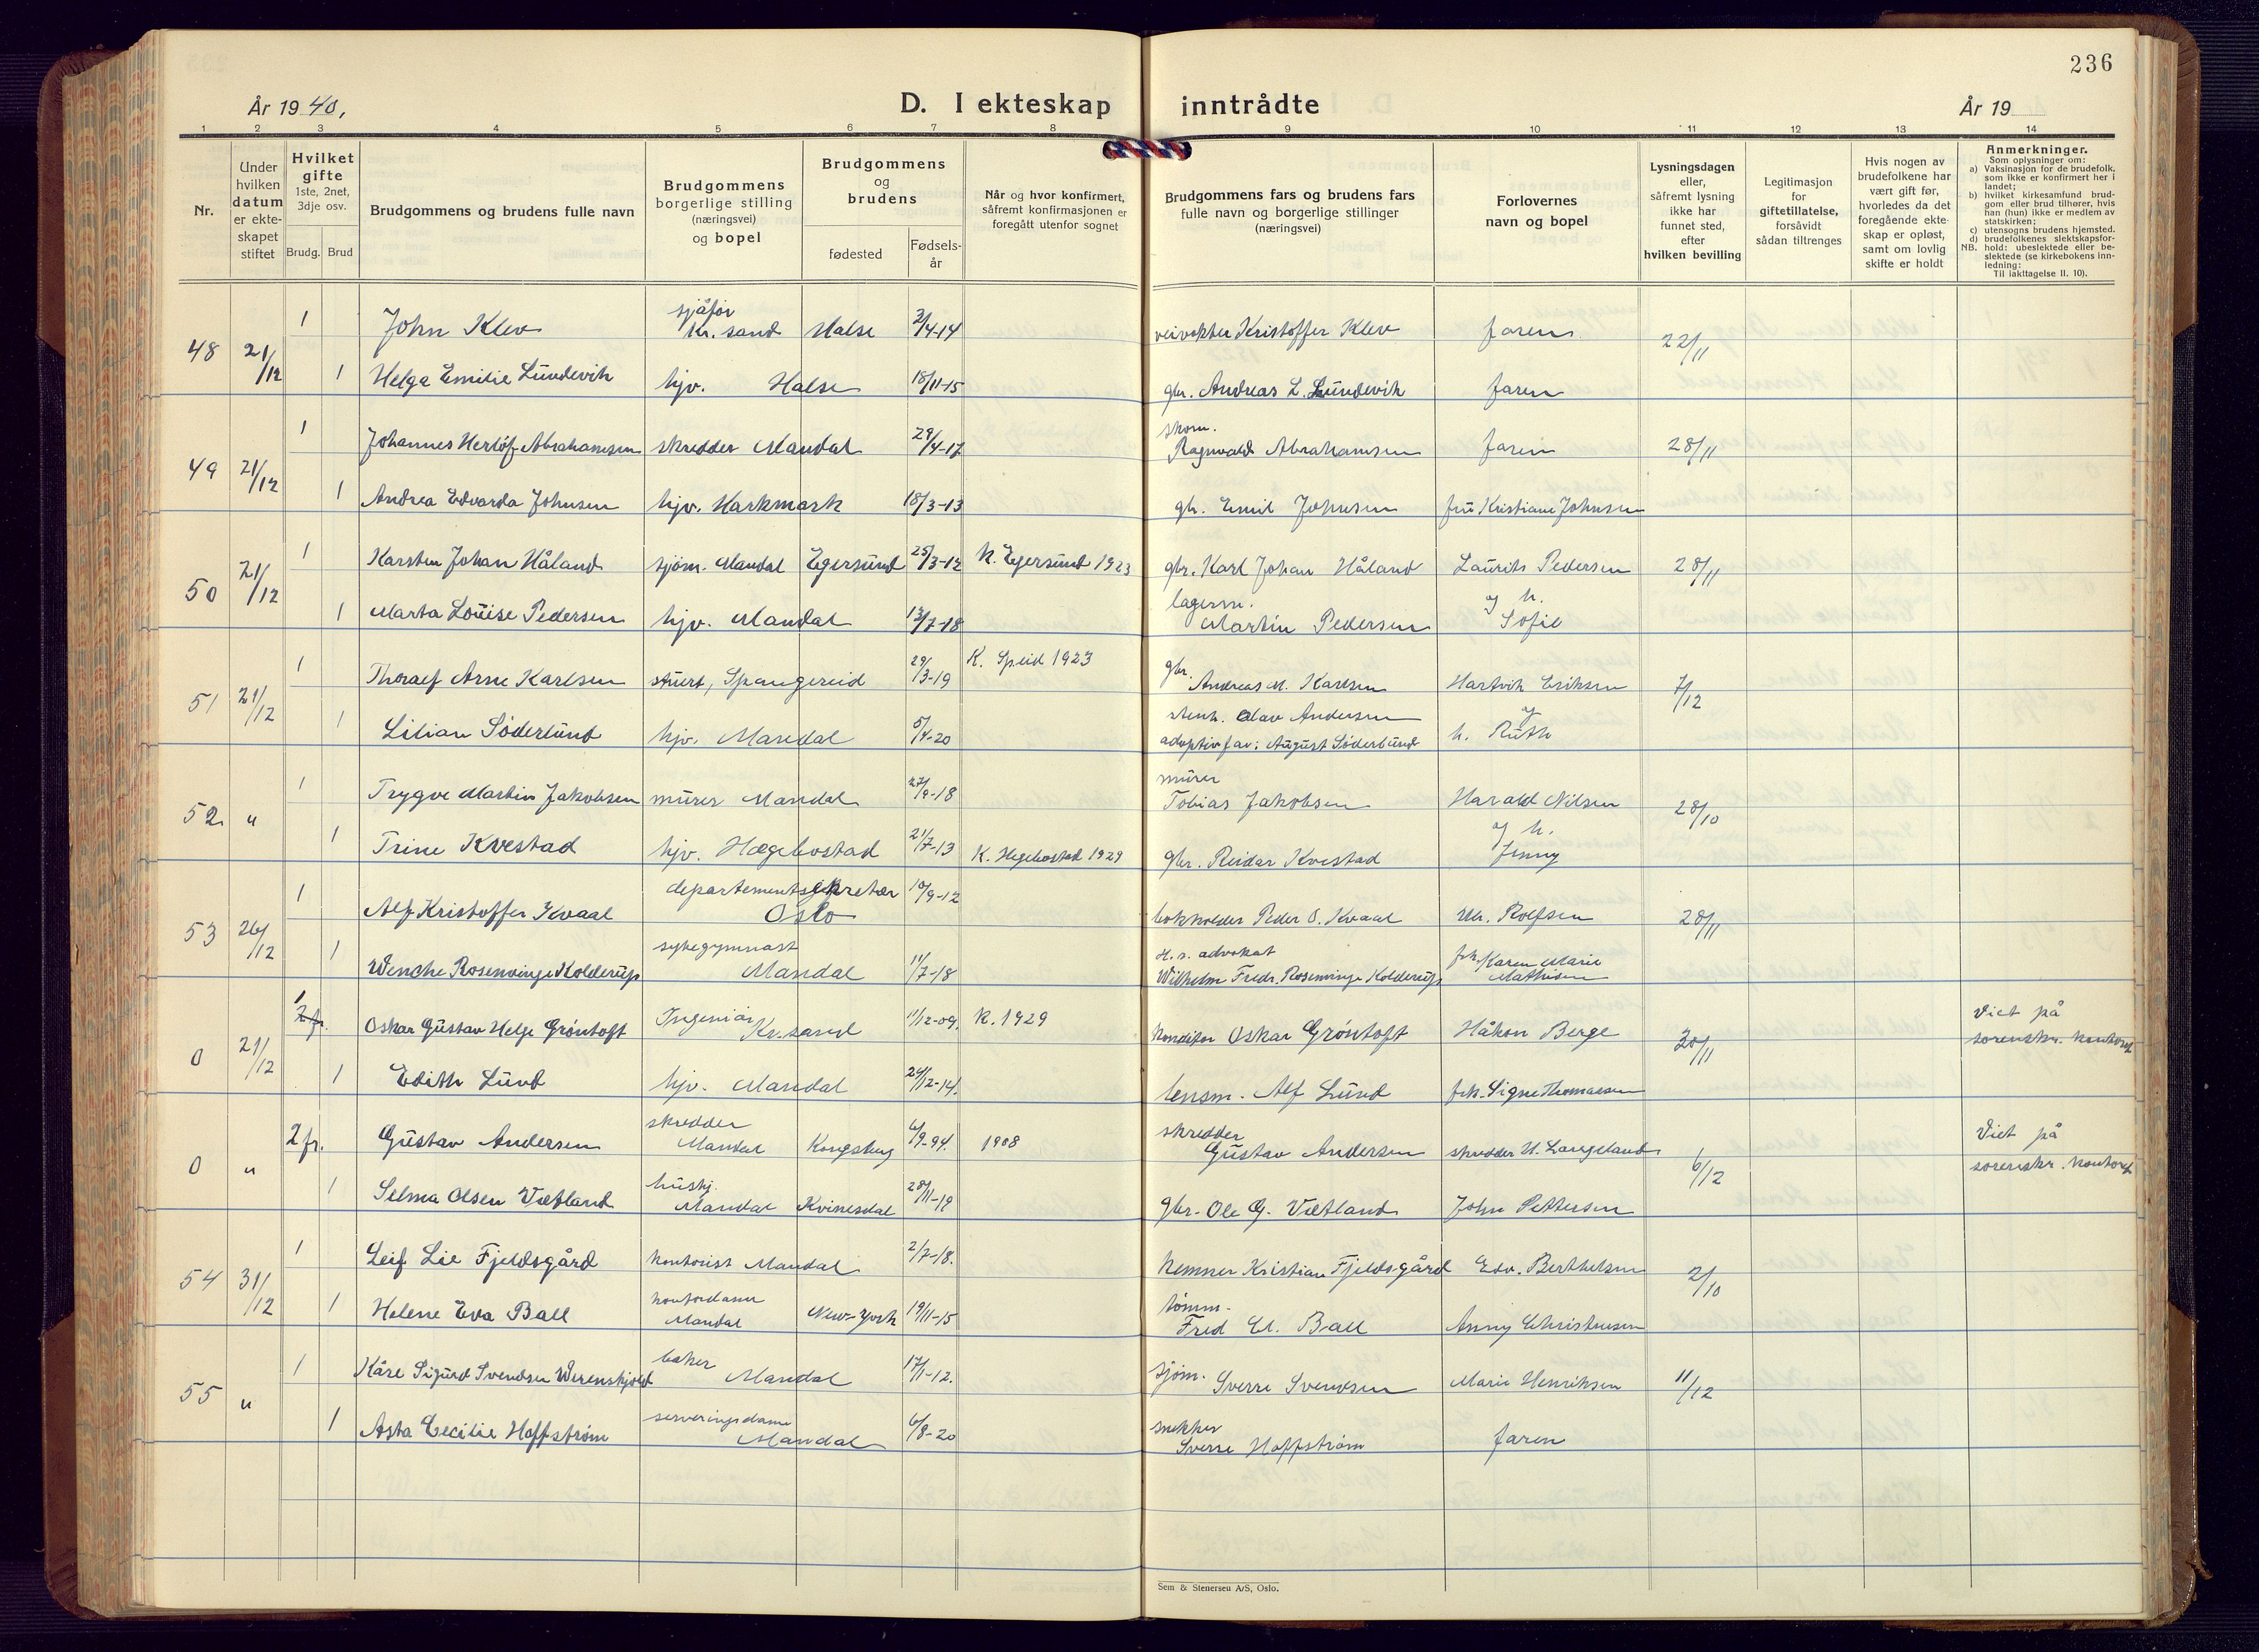 236
År 1940,
D. I ekteskap inntrådte
År 19
1 2 3 4 5 6 7 8 9 10 11 12 13 14
Nr.
Under
hvilken
datum
er ekte-
skapet
stiftet
Hvilket
gifte
1ste, 2net,
3dje osv.
Brudg. Brud
Brudgommens og brudens fulle navn
Brudgommens
borgerlige stilling
(næringsvei)
og bopel
Brudgommens
og
brudens
fødested
Fødsels-
år
Når og hvor konfirmert,
såfremt konfirmasjonen er
foregått utenfor sognet
Brudgommens fars og brudens fars
fulle navn og borgerlige stillinger
(næringsvei)
Forlovernes
navn og bopel
Lysningsdagen
eller,
såfremt lysning
ikke har
funnet sted,
efter
hvilken bevilling
Legitimasjon
for
giftetillatelse,
forsåvidt
sådan tiltrenges
Hvis nogen av
brudefolkene har
vært gift før,
hvorledes da det
foregående ekte-
skap er opløst,
samt om lovlig
skifte er holdt
Anmerkninger.
Som oplysninger om:
a) Vaksinasjon for de brudefolk,
som ikke er konfirmert her i
landet;
b) hvilket kirkesamfund brud-
gom eller brud tilhører, hvis
han (hun) ikke er medlem av
statskirken;
c) utensogns brudens hjemsted.
d) brudefolkenes slektskapsfor-
NB. hold: ubeslektede eller be-
slektede (se kirkebokens inn-
ledning:
Til iakttagelse II. 10).
48 21/12 1 John Klev sjåfør Kr.sand Halse 3/4-14 veivokter Kristoffer Klev faren 22/11
1 Helga Emilie Lundevik hjv. Halse 18/11-15 gbr. Andreas L. Lundevik faren
49 21/12 1 Johannes Herlöf Abrahamsen skredder Mandal 29/4-17 skom. Ragnvald Abrahamsen faren 28/11
1 Andrea Edvarda Johnsen hjv. Harkmark 18/3-13 gb. Emil Johnsen fru Kristiane Johnsen
50 21/12 1 Karsten Johan Håland sjøm. Mandal Egersund 25/3-12 K. Egersund 1923 gbr. Karl Johan Håland Laurits Pedersen 28/11
1 Marta Louise Pedersen hjv. Mandal 13/7-18 lagerm. Martin Pedersen og h. Sofie
51 21/12 1 Thoralf Arne Karlsen stuert, Spangereid 29/3-19 K. Sp.eid 1923 gbr. Andreas M. Karlsen Hartvik Eriksen 7/12
1 Lilian Söderlund hjv. Mandal 5/4-20 stenh. Olav Andersen og
adoptivfar: August Söderlund h. Ruth
52 " 1 Trygve Martin Jakobsen murer Mandal 27/9-18 murer Tobias Jakobsen Harald Nilsen 28/10
1 Trine Kvestad hjv. Hægebostad 21/7-13 K. Hegebostad 1929 gbr. Reidar Kvestad og h. Jenny
53 26/12 1 Alf Kristoffer Kvaal departementsekretær Oslo 10/9-12 bokholder Peder O. Kvaal Rolfsen 28/11
1 Wenche Rosenvinge Kolderup sykegymnast Mandal 11/7-18 H.r. advokat Wilhelm Fredr. Rosenvinge Kolderup frk. Karen Marie Mathisen
0 21/12 1 2 fr. Oskar Gustav Helge Gröntoft Ingeniør Kr.sand 11/12-09. K. 1929 konditor Oskar Gröntoft Håkon Berge 30/11 Viet på sorenskr. kontoret
1 Edith Lund hjv. Mandal 24/12-14. lensm. Alf Lund frk. Signe Thomassen
0 " 2 fr. Gustav Andersen skredder Mandal Kongsberg 6/9-94. 1908 skredder Gustav Andersen skredder H. Langeland 6/12 Viet på sorenskr. kontoret
1 Selma Olsen Vætland hushj. Mandal Kvinesdal 28/11-19 gbr. Ole G. Vætland John Pettersen
54 31/12 1 Leif Lie Fjeldsgård kontorist Mandal 2/7-18. kemner Kristian Fjeldsgård Edv. Berthelsen 2/10
1 Helene Eva Ball kontordame Mandal New-York 19/11-15 tømm. Fred Ball Anny Christensen
55 " 1 Kåre Sigurd Svendsen Werenskjold baker Mandal 17/1-12. sjøm. Sverre Svendsen Marie Henriksen 11/12
1 Asta Cecilie Hoffstrøm serveringsdame Mandal 6/8-20 snekker Sverre Hoffstrøm faren
Sem & Stenersen A/S, Oslo.